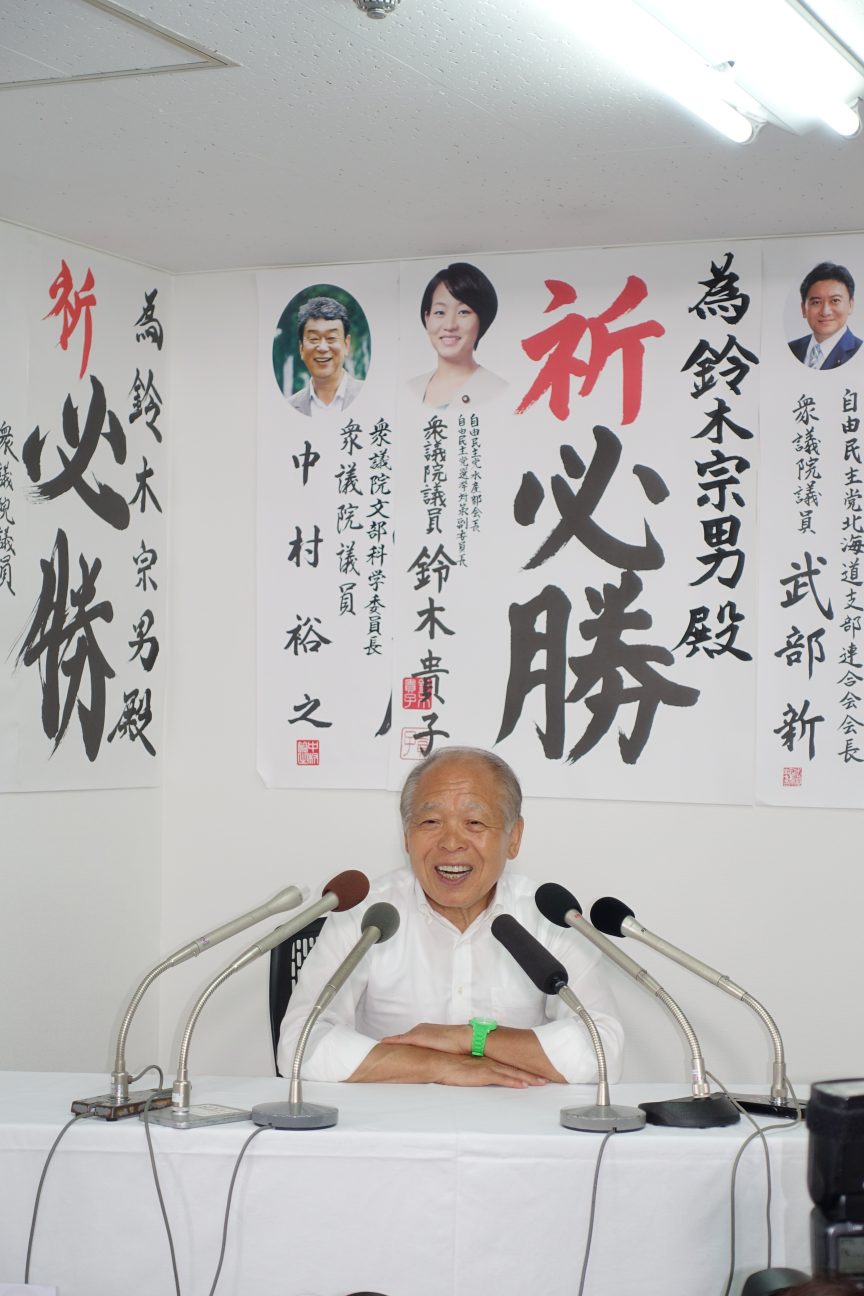 為鈴木宗男殿
祈必勝
衆議院議員
衆議院文部科学委員長
衆議院議員
中村裕之
為鈴木宗男殿
祈必勝
自由民主党水産部会長
自由民主党選挙対策副委員長
衆議院議員 鈴木貴子
自由民主党北海道支部連合会会長
衆議院議員 武部新